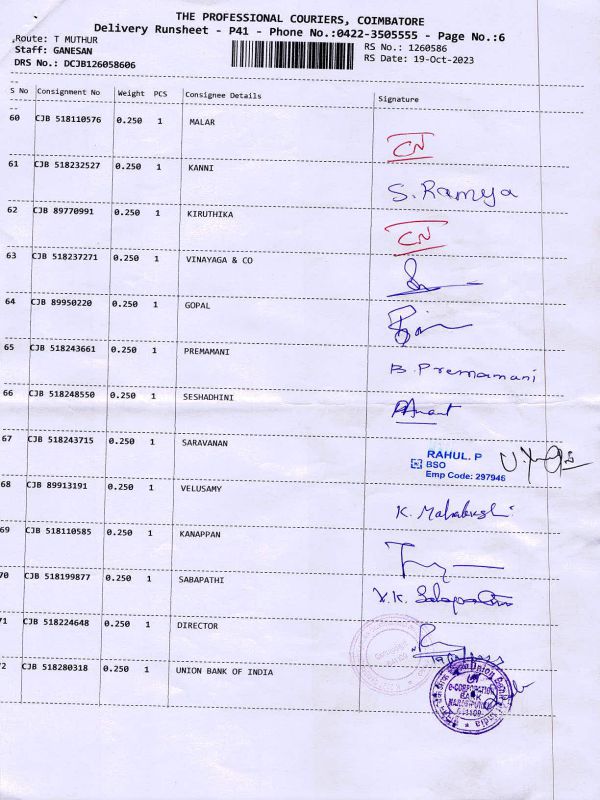 THE PROFESSIONAL COURIERS, COIMBATORE
Delivery Runsheet - P41 - Phone No.:0422-3505555 - Page No.:6
Route: T MUTHUR
RS No.: 1260586
Staff: GANESAN
RS Date: 19-Oct-2023
DRS No.: DCJB126058606
S No Consignment No Weight PCS Consignee Details Signature
60 CJB 518110576 0.250 1 MALAR
CN
61 CJB 518232527 0.250 1 KANNI
S. Ramya
62 CJB 89770991 0.250 1 KIRUTHIKA
CN
63 CJB 518237271 0.250 1 VINAYAGA & CO
64 CJB 89950220 0.250 1 GOPAL
65 CJB 518243661 0.250 1 PREMAMANI
B. Premamani
66 CJB 518248550 0.250 1 SESHADHINI
67 CJB 518243715 0.250 1 SARAVANAN
RAHUL. P
BSO
Emp Code: 297946
68 CJB 89913191 0.250 1 VELUSAMY
69 CJB 518110585 0.250 1 KANAPPAN
70 CJB 518199877 0.250 1 SABAPATHI
71 CJB 518224648 0.250 1 DIRECTOR
72 CJB 518280318 0.250 1 UNION BANK OF INDIA